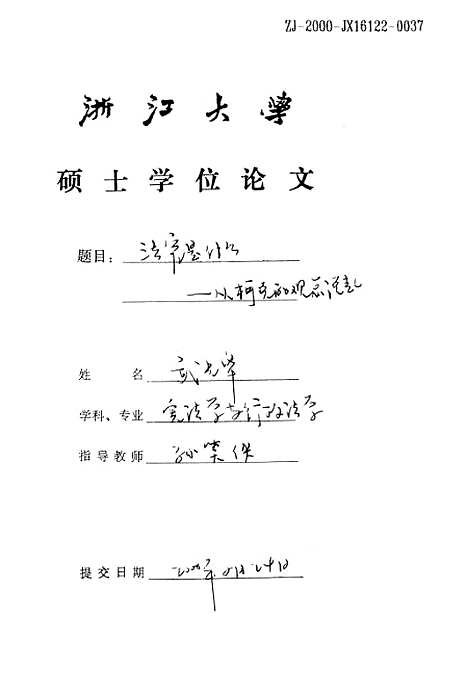 ZJ-2000-JX16122-0037
浙江大学
硕士学位论文
题目：法官是什么
——从柯克的观点说起
姓 名
学科、专业 宪法学与行政法学
指导教师 孙笑侠
提交日期 年 月 日